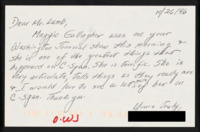 10/26/96
Dear Mr. Lamb,
Maggie Gallagher was on your
Washington Journal show this morning &
she is one of the greatest things that
appeared on C-Span. She is terrific. She is
very articulate, tells things as they really are
& I would love to see lots of her on
C-Span. Thank you.
Yours Truly,